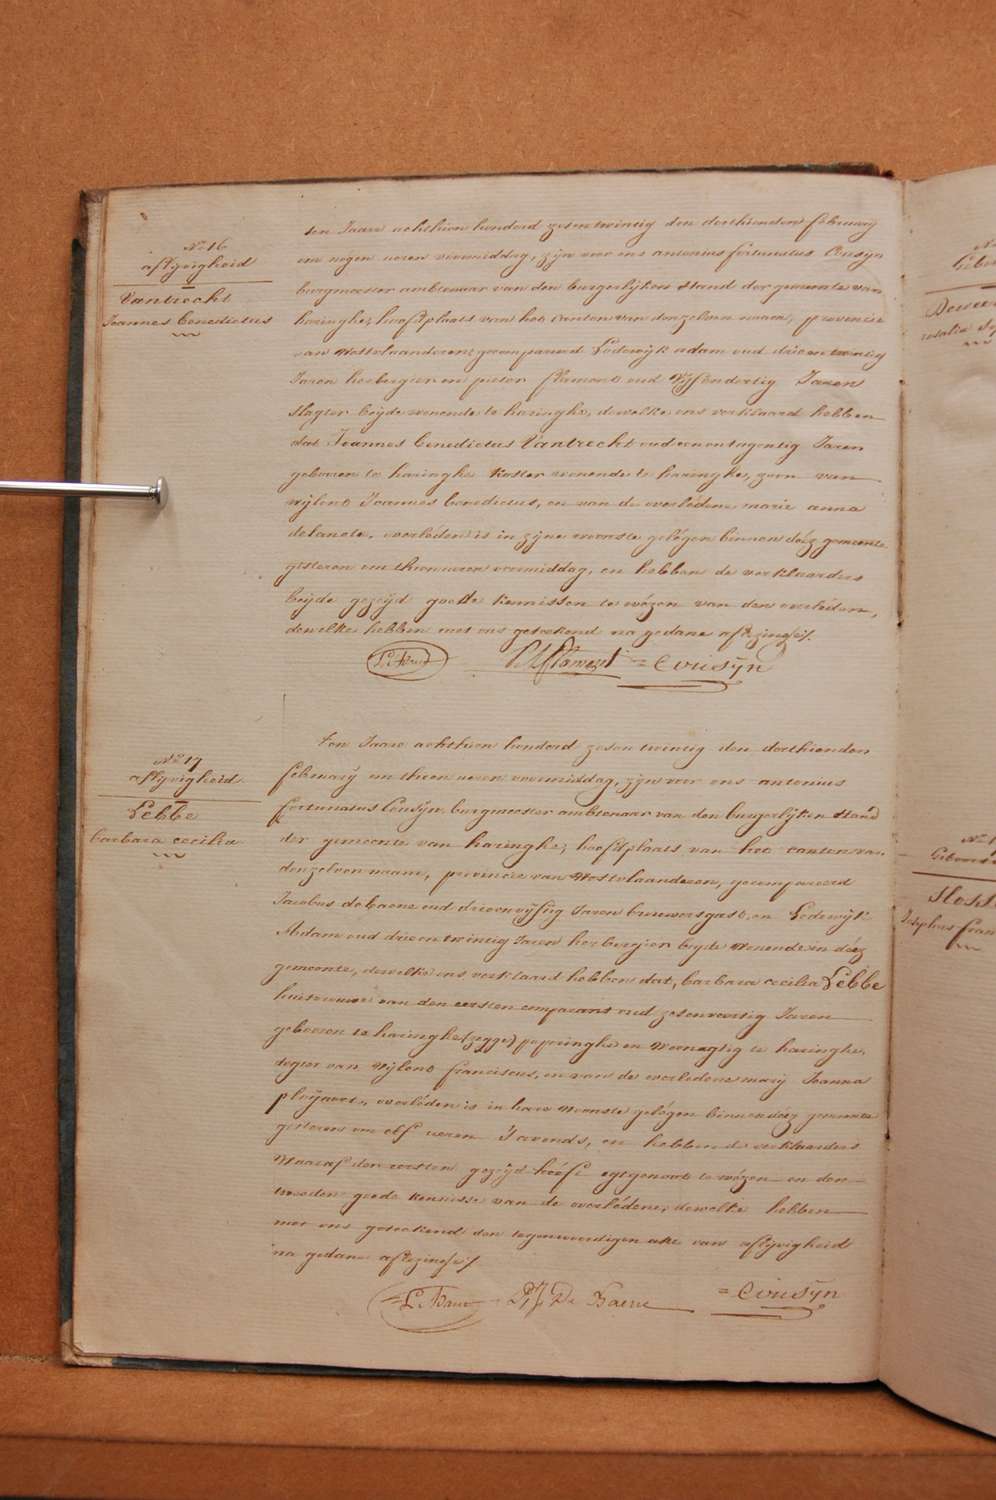 No 16
aflijvigheid
Vantrecht
Joannes benedictus
ten Jaare achthien honderd zesen twintig den derthienden februarij
om negen ueren voormiddag, zijn voor ons antonius fortunatus Cousijn
burgmeester ambtenaar van den burgerlijken stand der gemeente van
haringhe, hoofdplaats van het canton van denzelven naam, provincie
van Westvlaanderen; gecompareerd Lodewijk adam oud drieen twintig
Jaren herbergier en pieter flament oud vijfendertig Jaren
slagter beijde wonende te haringhe, dewelke ons verklaard hebben
dat Joannes benedictus Vantrecht oud eenentagentig Jaren
geboren te haringhe koster wonende te haringhe, zoon van
wijlend Joannes benedictus, en van de overlédene marie anna
delanote, overléden is in zijne woonste gelégen binnen déez gemeente
gisteren om thien ueren voormiddag, en hebben de verklaarders
beijde gezeijd goede kennissen te wézen van den overléden,
dewelke hebben met ons geteekend na gedane aflezinge./.
P. flament = Cousijn
No 17
aflijvigheid
Lebbe
barbara cecilia
Ten Jaare achthien honderd zesen twintig den derthienden
februarij om thien ueren voormiddag, zijn voor ons antonius
fortunatus Cousijn, burgmeester ambtenaar van den burgerlijken stand
der gemeente van haringhe, hoofdplaats van het canton van
denzelven naam, provincie van Westvlaanderen, gecompareerd
Jacobus debaene oud drieenvijftig Jaren brouwersgast, en Lodewijk
Adam oud drieen twintig Jaren herbergier beijde wonende in déez
gemeente, dewelke ons verklaard hebben dat, barbara cecilia Lebbe
huisvrouwe van den eersten comparant oud zesenveertig Jaren
geboren te haringhe (zegge) poperinghe en woonagtig te haringhe,
dogter van wijlend franciscus, en van de overledene marij Joanna
pluijaert, overléden is in hare woonste gelégen binnen déez gemeente
gisteren om elf ueren S'avonds, en hebben de verklaarders
Waaraf den eersten gezeijd heéft egtgenoot te wézen en den
tweeden goede kennisse van de overlédene, dewelke hebben
met ons geteekend den tegenwoordigen akte van aflijvigheid
na gedane aflezinge./.
De Baene = Cousijn